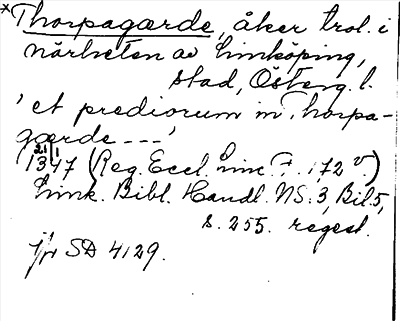 *Thorpagærde, åker trol. i
närheten av Linköping,
stad, Österg. l.
'et prediorum in Thorpa-
gærde---'
21/1
1347 (Reg. Eccl. Linc. F. 172 v)
Link. Bibl. Handl. NS. 3, Bil. 5,
s. 255. regest.
jfr SD 4129.